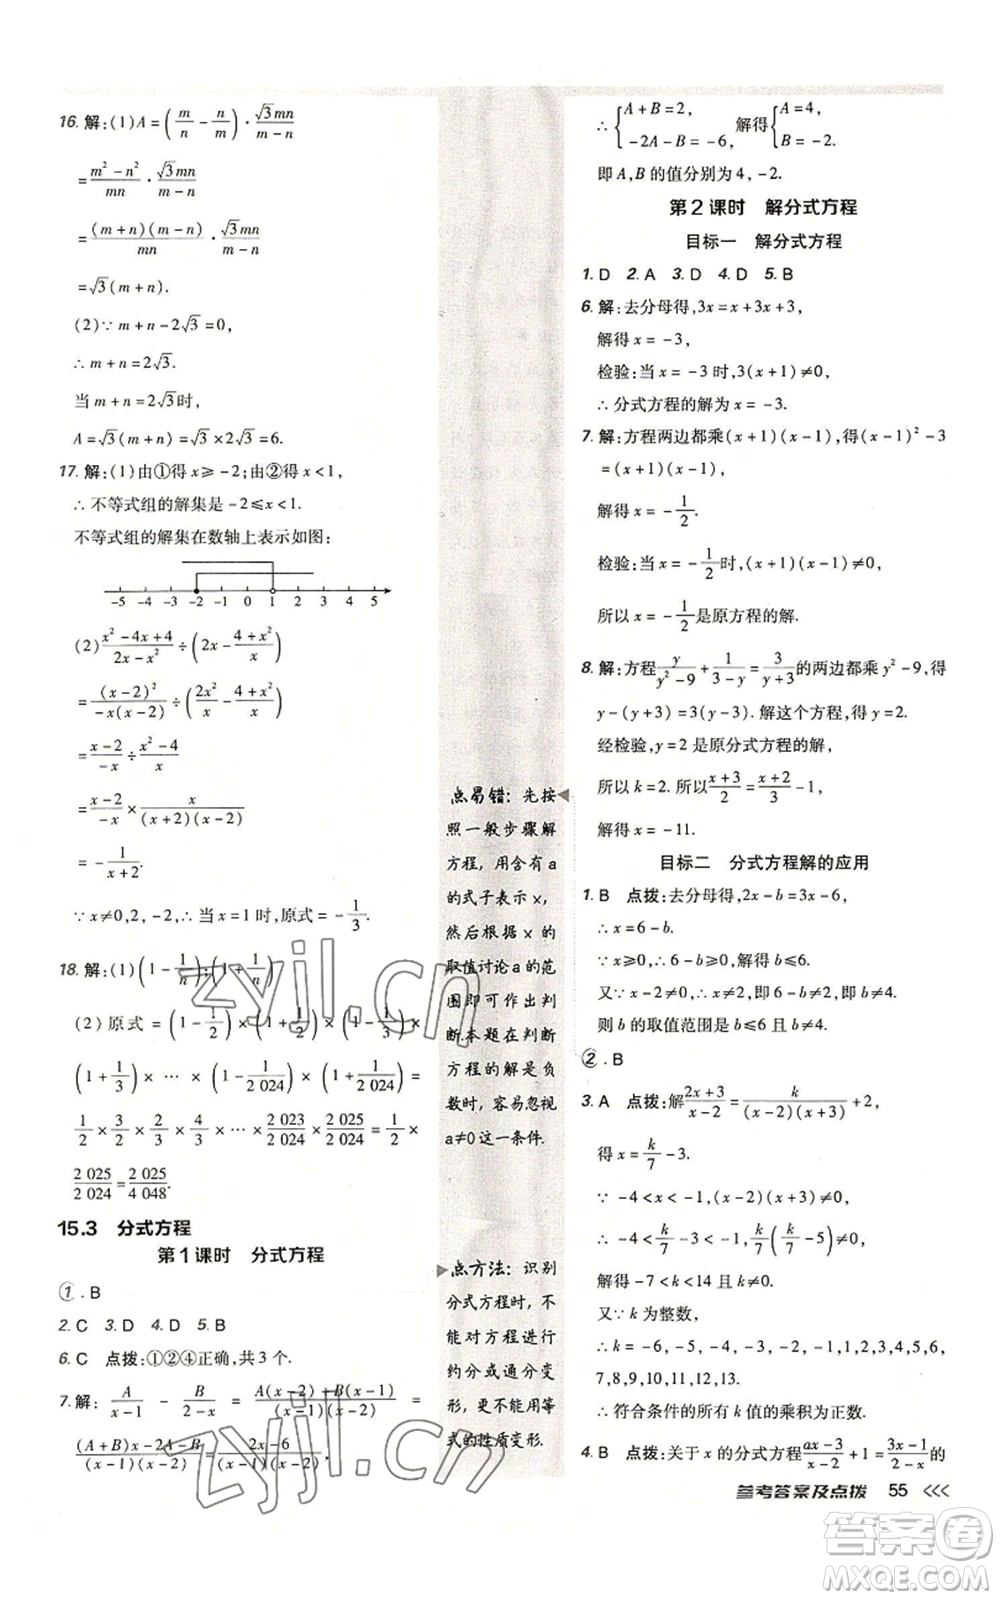 16. 解:(1)A=(m/n-n/m)·√3mn/(m-n)
=(m²-n²)/mn·√3mn/(m-n)
=(m+n)(m-n)/mn·√3mn/(m-n)
=√3(m+n).
(2)∵m+n-2√3=0,
∴m+n=2√3.
当m+n=2√3时,
A=√3(m+n)=√3×2√3=6.
17. 解:(1)由①得x≥-2;由②得x<1,
∴不等式组的解集是-2≤x<1.
不等式组的解集在数轴上表示如图:
-5 -4 -3 -2 -1 0 1 2 3 4 5
(2)(x²-4x+4)/(2x-x²)÷(2x-(4+x²)/x)
=(x-2)²/(-x(x-2))÷(2x²/x-(4+x²)/x)
=(x-2)/(-x)÷(x²-4)/x
=(x-2)/(-x)×x/((x+2)(x-2))
=-1/(x+2).
∵x≠0,2,-2,∴当x=1时,原式=-1/3.
18. 解:(1)(1-1/n);(1+1/n)
(2)原式=(1-1/2)×(1+1/2)×(1-1/3)×
(1+1/3)×…×(1-1/2 024)×(1+1/2 024)=
1/2×3/2×2/3×4/3×…×2 023/2 024×2 025/2 024=1/2×
2 025/2 024=2 025/4 048.
15.3 分式方程
第1课时 分式方程
1. B
2. C 3. D 4. D 5. B
6. C 点拨:①②④正确,共3个.
7. 解:A/(x-1)-B/(2-x)=(A(x-2)+B(x-1))/((x-1)(x-2))=
((A+B)x-2A-B)/((x-1)(x-2))=(2x-6)/((x-1)(x-2)),
点易错:先按
照一般步骤解
方程,用含有a
的式子表示x,
然后根据x的
取值讨论a的范
围即可作出判
断.本题在判断
方程的解是负
数时,容易忽视
a≠0这一条件.
点方法:识别
分式方程时,不
能对方程进行
约分或通分变
形,更不能用等
式的性质变形.
∴{A+B=2, -2A-B=-6, 解得{A=4, B=-2.
即A,B的值分别为4,-2.
第2课时 解分式方程
目标一 解分式方程
1. D 2. A 3. D 4. D 5. B
6. 解:去分母得,3x=x+3x+3,
解得x=-3,
检验:当x=-3时,3(x+1)≠0,
∴分式方程的解为x=-3.
7. 解:方程两边都乘(x+1)(x-1),得(x+1)²-3
=(x+1)(x-1),
解得x=-1/2.
检验:当x=-1/2时,(x+1)(x-1)≠0,
所以x=-1/2是原方程的解.
8. 解:方程y/(y²-9)+1/(3-y)=3/(y+3)的两边都乘y²-9,得
y-(y+3)=3(y-3).解这个方程,得y=2.
经检验,y=2是原分式方程的解,
所以k=2.所以(x+3)/2=2x/3-1,
解得x=-11.
目标二 分式方程解的应用
1. B 点拨:去分母得,2x-b=3x-6,
∴x=6-b.
∵x≥0,∴6-b≥0,解得b≤6.
又∵x-2≠0,∴x≠2,即6-b≠2,b≠4.
则b的取值范围是b≤6且b≠4.
2. B
3. A 点拨:解(2x+3)/(x-2)=k/((x-2)(x+3))+2,
得x=k/7-3.
∵-4<x<-1,(x-2)(x+3)≠0,
∴-4<k/7-3<-1,k/7(k/7-5)≠0,
解得-7<k<14且k≠0.
又∵k为整数,
∴k=-6,-5,-4,-3,-2,-1,1,2,3,4,5,6,
7,8,9,10,11,12,13.
∴符合条件的所有k值的乘积为正数.
4. B 点拨:关于x的分式方程(ax-3)/(x-2)+1=(3x-1)/(2-x)的
参考答案及点拨 55
zyjl.cn
zyjl.cn
答案圈
MXQE.COM